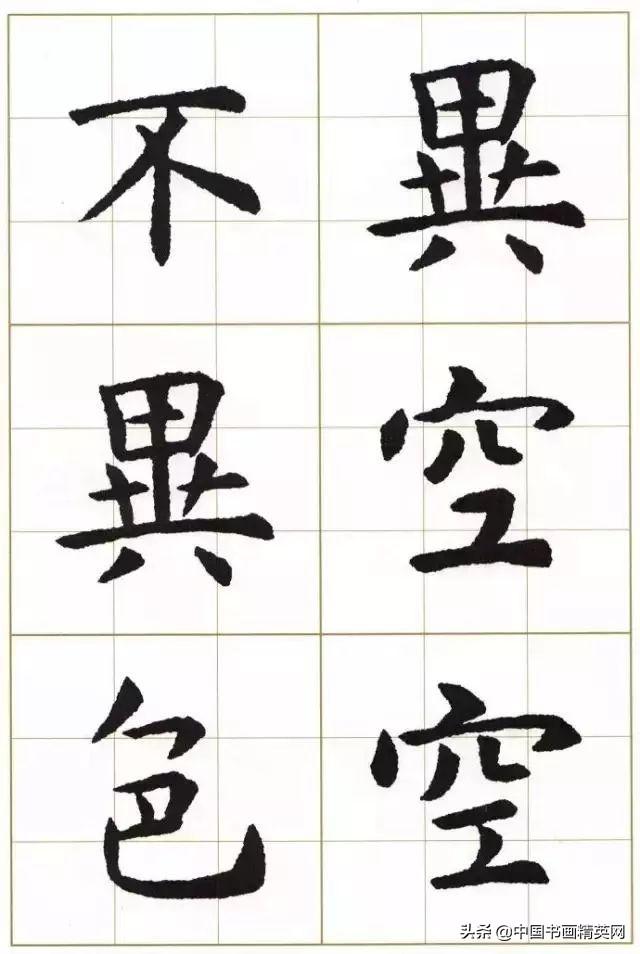 異空空
不異色
头条 @中国书画精英网